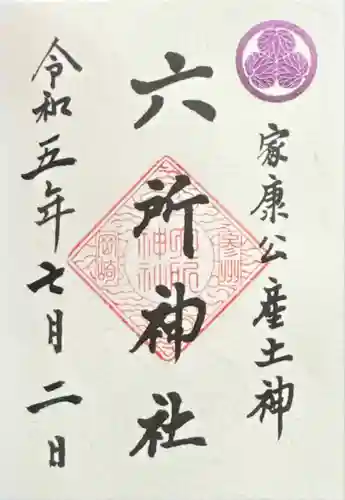 家康公産土神
六所神社
令和五年七月二日
参州
六所
神社
岡崎